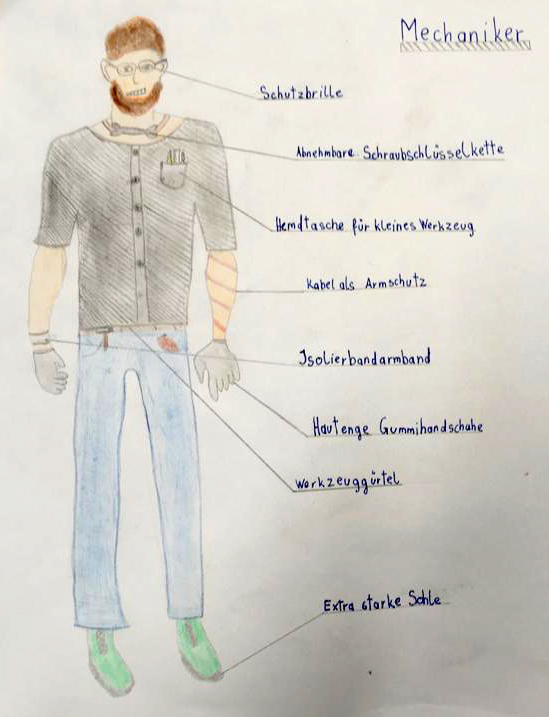 Mechaniker
Schutzbrille
Abnehmbare Schraubschlüsselkette
Hemdtasche für kleines Werkzeug
Kabel als Armschutz
Isolierbandarmband
Hautenge Gummihandschahe
Werkzeuggürtel
Extra starke Sohle